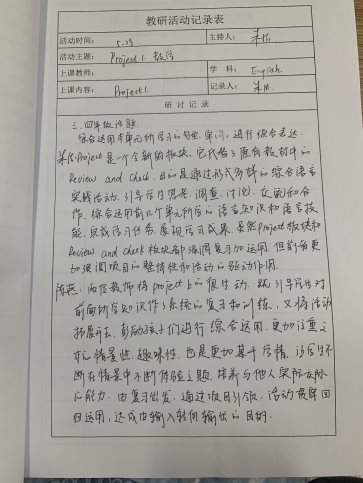 教研活动记录表
活动时间: 5.29 主持人:
活动主题: Project 1. 教学
上课教师: 学 科: English.
上课内容: Project 1. 记录人:
研 讨 记 录
三.四年级话题
综合运用本单元所学习的句型、单词,进行综合表达.
Project是一个全新的板块,它代替了原有教材中的
Review and check. 目的是通过形式多样的综合语言
实践活动,引导学生思考、调查、讨论、交流和合
作,综合运用前几个单元所学的语言知识和语言技
能,完成学习任务,展现学习成果.虽然Project板块和
Review and check板块都强调复习和运用,但前者更
加强调项目的整体性和活动的驱动作用.
两位教师将project上的很生动.既引导学生对
前面所学知识作了系统的复习和训练,又将活动
拓展开去,鼓励孩子们进行综合运用.更加注重文
本的情景性、趣味性.也是更加基于学情,让学生不
断在情景中不断体验主题,培养与他人实际交际
的能力.由复习出发,通过项目引领,活动最终回
归运用,达成由输入转向输出的目的.